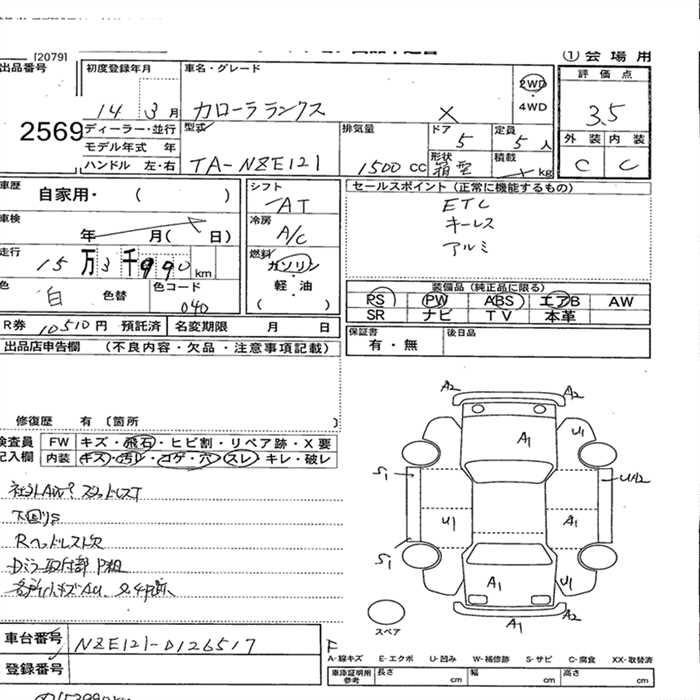 [2079]
① 会 場 用
出品番号
2569
初度登録年月
14 3 月
車名・グレード
カローラ ランクス X
2WD
4WD
評 価 点
3.5
外 装 内 装
C C
ディーラー・並行
モデル年式 年
ハンドル 左・右
型式
TA-NZE121
排気量
1500 CC
ドア
5
形状
箱型
定員
5 人
積載
kg
車歴
自家用・ ( )
車検
年 月( 日)
走行
15 万 3 千 990 km
色
白 色替
色コード
040
シフト
AT
冷房
A/C
燃料
ガソリン
軽・油
( )
セールスポイント (正常に機能するもの)
ETC
キーレス
アルミ
装備品 (純正品に限る)
PS PW ABS エアB AW
SR ナビ TV 本革
R券 10510円 預託済 名変期限 月 日
保証書
有・無
後日品
出品店申告欄 (不良内容・欠品・注意事項記載)
修復歴 有 〔箇所 〕
検査員
記入欄
FW キズ・飛石・ヒビ割・リペア跡・X 要
内装 キズ・汚レ・コゲ・穴・スレ・キレ・破レ
社外AW スタッドレスT
下回りS
Rヘッドレスト欠
Dミラー取付部 P粗
車台番号 NZE121-0126517
登録番号
A2 A2
A1 U1
S1 U1 A1
S1
A1 U1
A1 A2
スペア
F
A-線キズ E-エクボ U-凹み W-補修跡 S-サビ C-腐食 XX-取替済
車庫証明用
参考
長さ cm 幅 cm 高さ cm